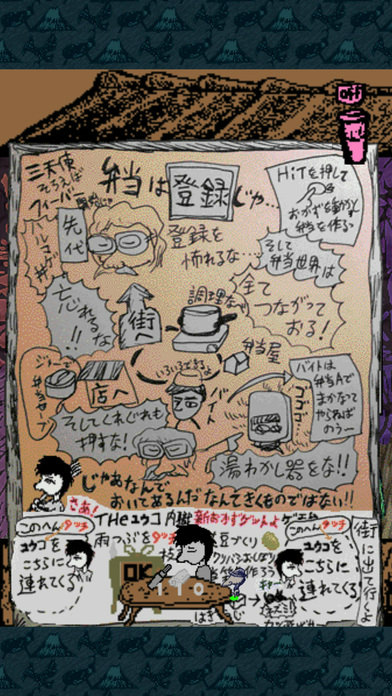 off
三天使
そろえば
フィーバー
弁当は
登録
じゃ…
HiTを押して
おかずを動かし
弁当を作る
先代
登録を
怖れるな…
そして
弁当世界は
全て
つながって
おる!
忘れるな
!!
街へ
調理など
弁当屋
店へ
いろいろできるよ
バイト
バイトは
弁当Aで
まかなって
やらねば
のうー
ゴゴゴ…
そしてくれぐれも
押すな!
湯わかし器をな!!
じゃあなんで
おいてあるんだなんてきくものではない!!
さあ!
THEユウコ内蔵
新おかずゲットよ
このへんタッチ
ユウコを
こちらに
連れてくる
雨つぶをタッチ
豆づくり
OK
110
このへんタッチ
ユウコを
こちらに
連れてくる
街に出て行くよ